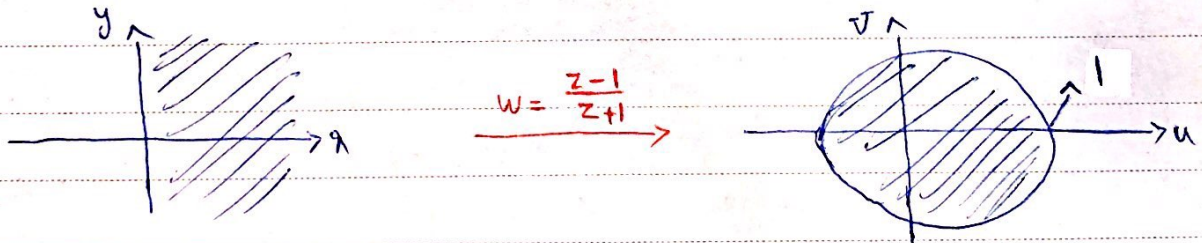 y
x
w = \frac{z-1}{z+1}
v
1
u